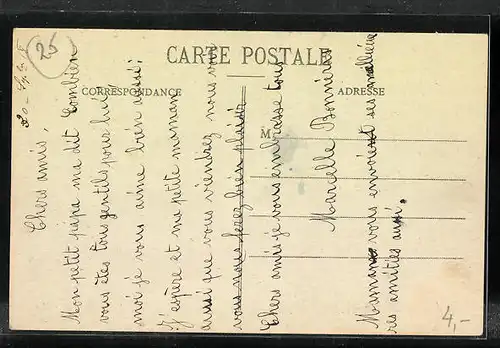 25
CARTE POSTALE
CORRESPONDANCE
ADRESSE
M
Chers amis,
Mon petit papa ma dit combien
vous êtes tous gentils pour lui
moi je vous aime bien aussi;
J'espère et ma petite maman
aussi que vous viendrez nous voir
vous nous ferez bien plaisir
Chers amis je vous embrasse tous
Marcelle
Maman vous envoient ses meilleu
res amitiés aussi.
4,-